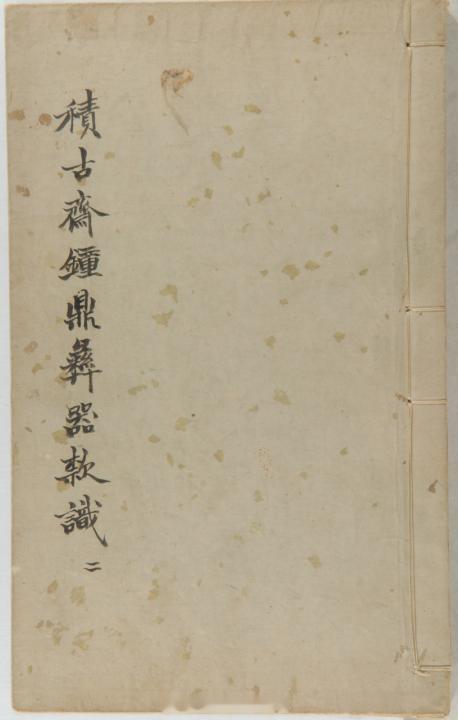 積古齋鐘鼎彝器款識 二